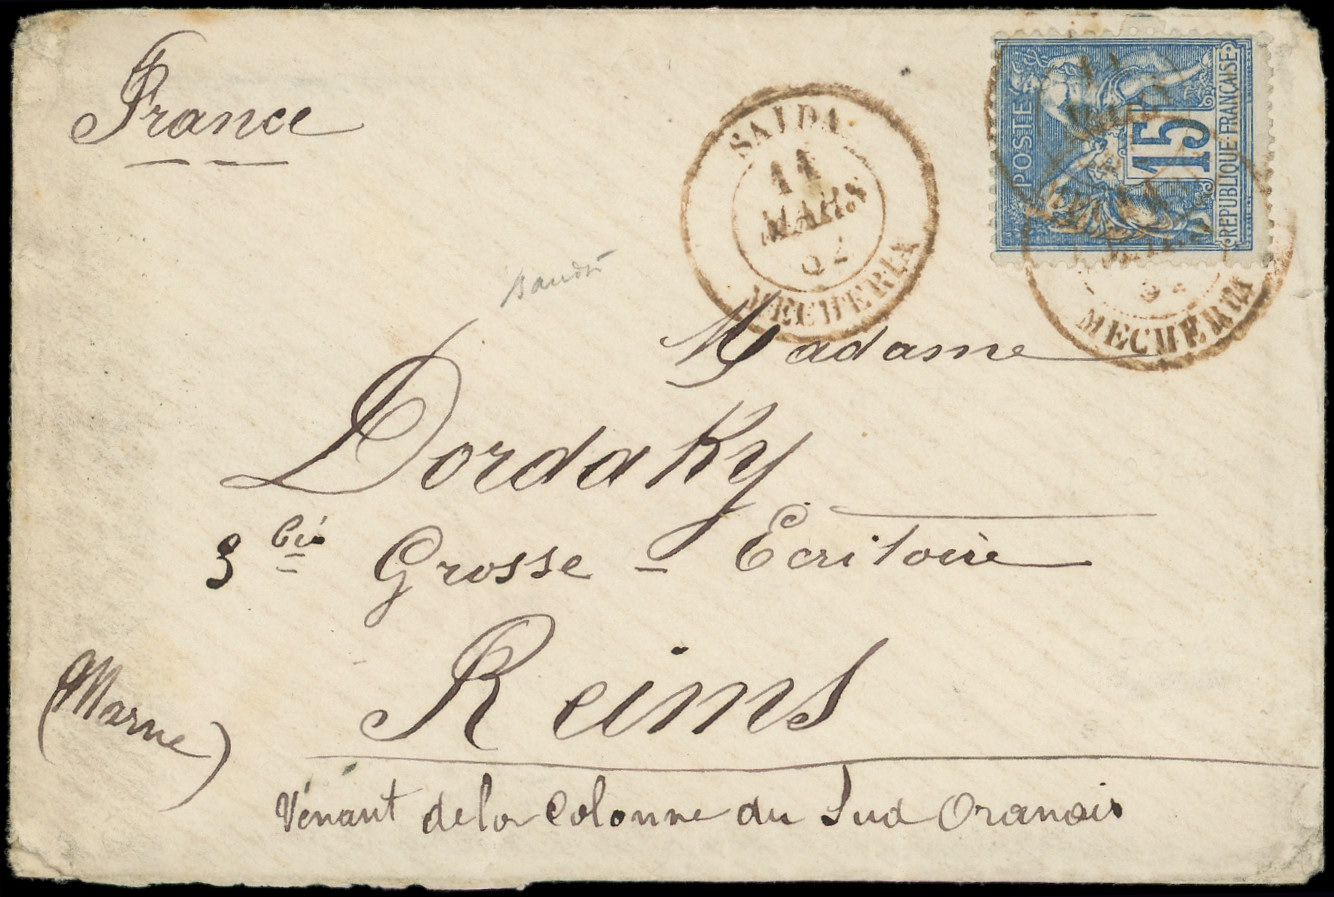 France
SAIDA
11
MARS
82
MECHERIA
POSTE
15
REPUBLIQUE FRANÇAISE
MECHERIA
Madame
Dordaky
3 Grosse - Ecritoire
Reims
(Marne)
Vénant de la Colonne du Sud Oranais